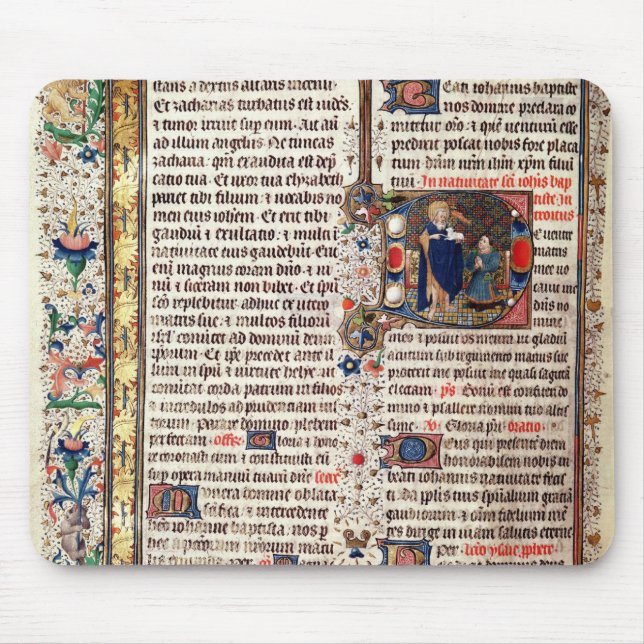 Et zacharias turbatus est videns
& timor irruit sup eum. Ait aut
ad illum angelus. Ne timeas
zacharia: qm exaudita est dep
catio tua. Et uxor tua elyzabeth
pariet tibi filium: & vocabis no
men eius iohem. Et erit tibi
gaudiu & exultatio: & multi
natiuitate eius gaudebut. Erit
eni magnus coram dno: & ui
nu & siceram non bibet. Et spu
sco replebitur adhuc ex utero
matris sue: & multos filiorum
isrl conuertet ad dominu deum
ipsorum. Et ipse precedet ante il
lum in spu & uirtute helye: ut
conuertat corda patrum in filios
& incredulos ad prudentiam ius
torum. Parare domino plebem
perfectam. offer. Gloria & hono
re coronasti eum: & constituisti eu
sup opera manuu tuaru dne. secre
Munera domine oblata
sctifica: & intercedente
beato iohanne baptista. nos p
Beati iohannis baptiste
nos domine preclara
comitetur oro: & que uenturu esse
predixit poscat nobis fore placa
tum. dnm nrm ihm xpm filiu
tuu. In natiuitate sci iohis bap
tiste. In
troitus.
De uentre
matris
me uo
cauit
dns no
mine
meo: & posuit os meum ut gladiu
acutum: sub tegumento manus sue
protexit me posuit me quasi sagitta
electam. ps. Bonu est confiteri do
mino: & psallere nomini tuo altis
sime. V. Gloria pri. oratio.
Deus qui presente diem
honorabilem nobis in
beati iohannis natiuitate fecis
ti: da pplis tuis spualium gratia
gaudiorum: & omniu fidelium men
tes dirige in uiam salutis eterne
Per. lectio ysaie prophete.